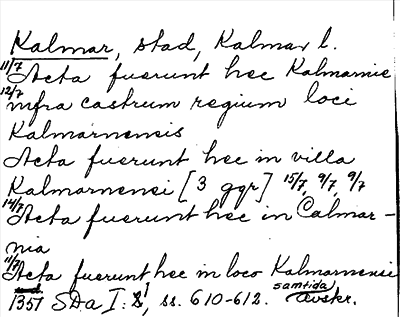 Kalmar, stad, Kalmar l.
11/7 Acta fuerunt hec Kalmarnie
12/7 infra castrum regium loci
Kalmarnensis
Acta fuerunt hec in villa
Kalmarnensi [3 ggr] 15/7, 9/7, 9/7
14/7 Acta fuerunt hec in Calmar-
nia
11/7 Acta fuerunt hec in loco Kalmarnensi
1351 SDa I: 2, ss. 610-612. samtida avskr.